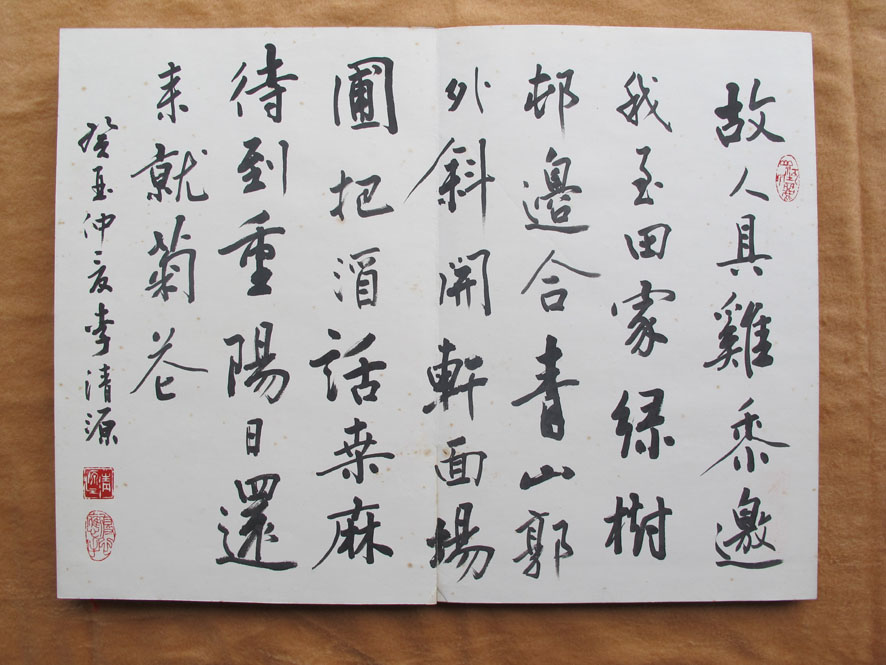 故人具雞黍邀
我至田家綠樹
邨邊合青山郭
外斜開軒面場
圃把酒話桑麻
待到重陽日還
来就菊花
癸 仲夏李清源